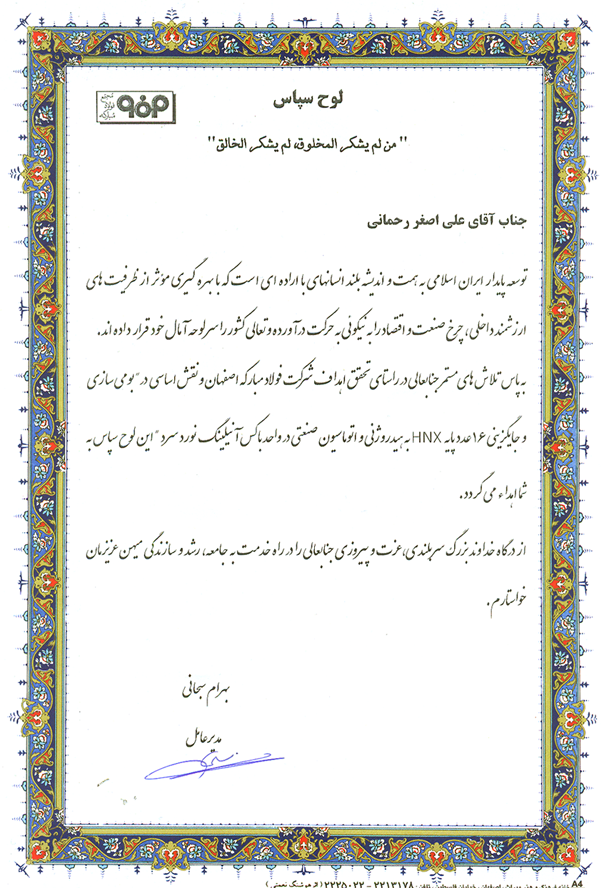 لوح سپاس
مجتمع فولاد مبارکه
"من لم یشکر المخلوق، لم یشکر الخالق"
جناب آقای علی اصغر رحمانی
توسعه پایدار ایران اسلامی به همت و اندیشه بلند انسانهای با اراده ای است که با بهره گیری مؤثر از ظرفیت های
ارزشمند داخلی، چرخ صنعت و اقتصاد را به نیکوئی به حرکت درآورده و تعالی کشور را سرلوحه آمال خود قرار داده اند.
به پاس تلاش های مستمر جنابعالی در راستای تحقق اهداف شرکت فولاد مبارکه اصفهان و نقش اساسی در "بومی سازی
و جایگزینی ۱۶ عدد پایه HNX به هیدروژنی و اتوماسیون صنعتی در واحد باکس آنیلینگ نورد سرد" این لوح سپاس به
شما اهداء می گردد.
از درگاه خداوند بزرگ سربلندی، عزت و پیروزی جنابعالی را در راه خدمت به جامعه، رشد و سازندگی میهن عزیزمان
خواستارم.
بهرام سبحانی
مدیرعامل
۲۲۱۳۱۷۸ - ۲۲۲۵۰۲۲ (از هوشنگ نعمتی)
A4